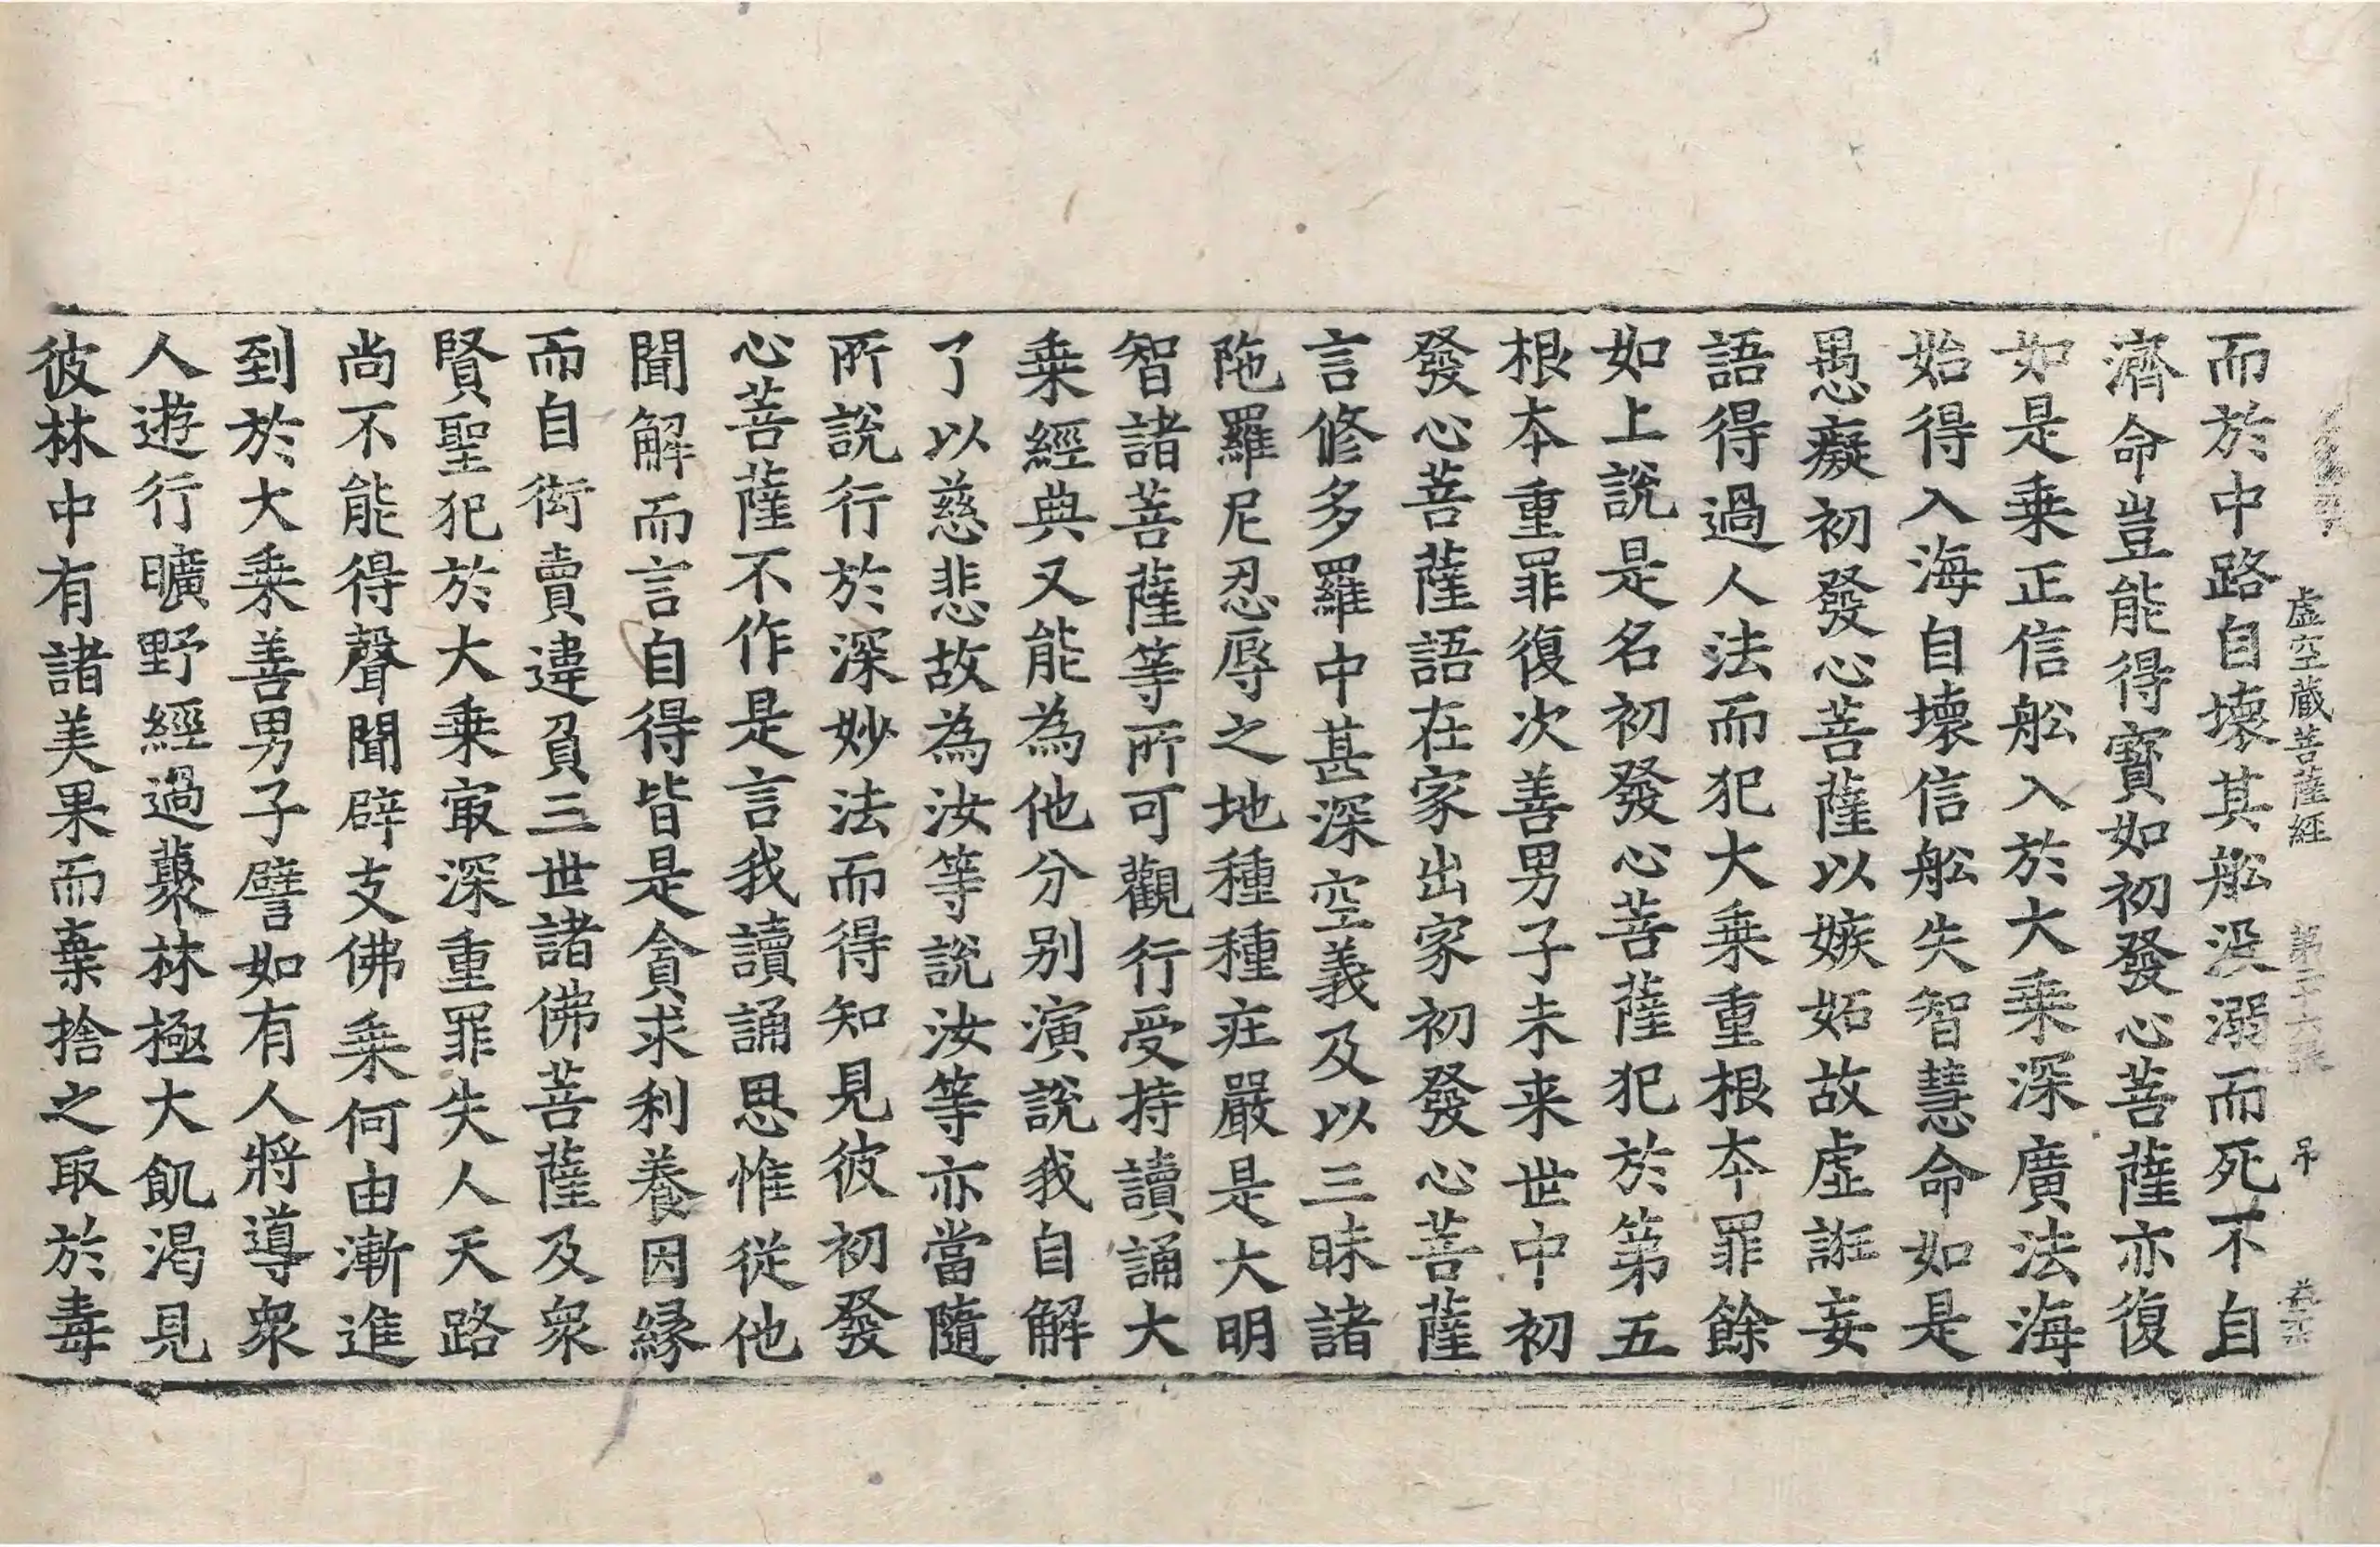 虛空藏菩薩經 第十六張 吊
而於中路自壞其舩没溺而死不自
濟命豈能得寶如初發心菩薩亦復
如是乗正信舩入於大乗深廣法海
始得入海自壞信舩失智慧命如是
愚癡初發心菩薩以嫉妬故虛誑妄
語得過人法而犯大乗重根本罪餘
如上說是名初發心菩薩犯於第五
根本重罪復次善男子未来世中初
發心菩薩語在家出家初發心菩薩
言修多羅中甚深空義及以三昧諸
陁羅尼忍辱之地種種莊嚴是大明
智諸菩薩等所可觀行受持讀誦大
乗經典又能為他分别演說我自解
了以慈悲故為汝等說汝等亦當隨
所說行於深妙法而得知見彼初發
心菩薩不作是言我讀誦思惟從他
聞解而言自得皆是貪求利養因縁
而自衒賣違負三世諸佛菩薩及衆
賢聖犯於大乗㝡深重罪失人天路
尚不能得聲聞辟支佛乗何由漸進
到於大乗善男子譬如有人將導衆
人遊行曠野經過藂林極大飢渴見
彼林中有諸美果而棄捨之取於毒